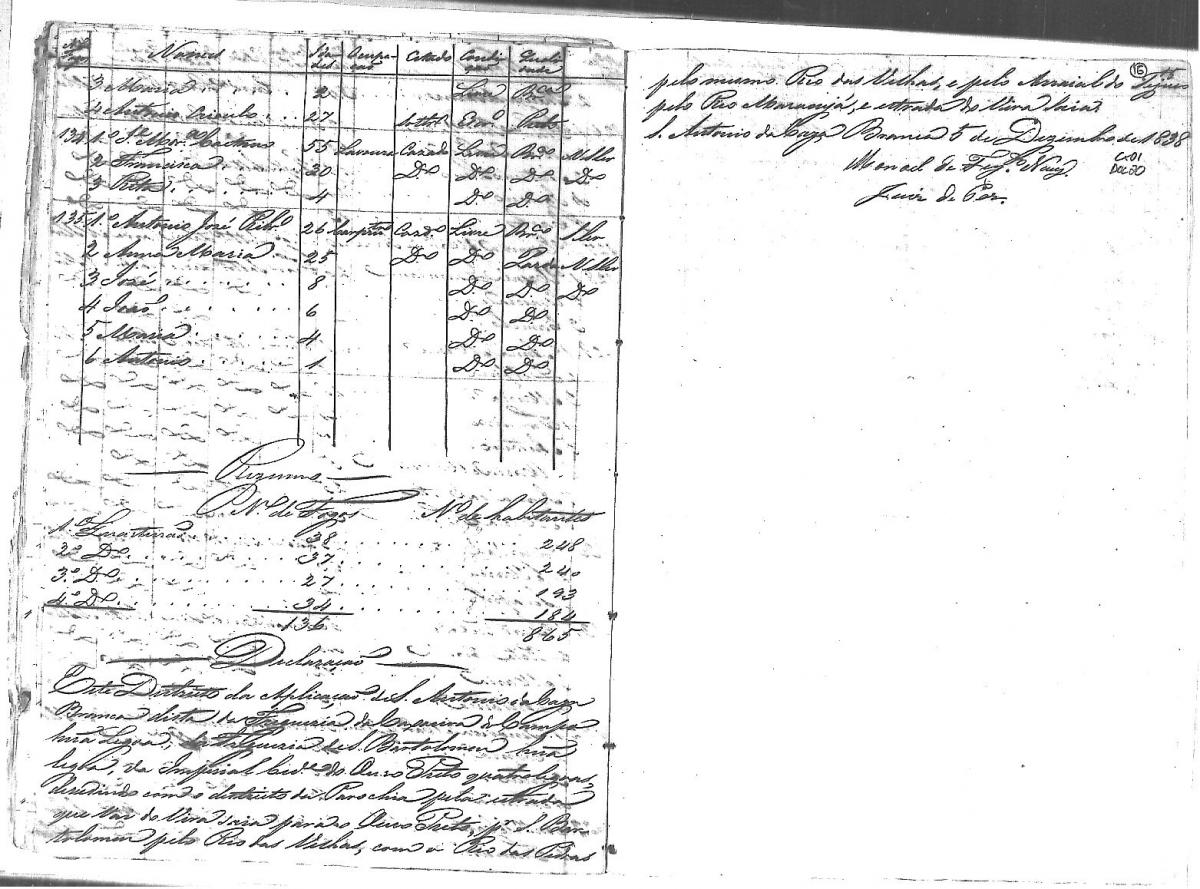 Nomes Idades Ocupação Estado Condição Qualidade
3 Maria 2 Livre Br.co
4 Antonio Crioulo 27 Solt.o Preto
134 1.º Caetano 55 Lavoura Cazado Livre
2 Francisca 30 D.o D.o D.o D.o
3 Rita 4 D.o D.o
135 1.º Antonio José Rib.o 26 Caz.do Livre
2 Anna Maria 25 D.o D.o
3 José 8 D.o D.o D.o
4 João 6 D.o D.o
5 Maria 4 D.o D.o
6 Antonio 1 D.o D.o
Rezumo
N.º de Fogos N.º de habitantes
1.º Quarteirão 38 248
2.º D.o 37 240
3.º D.o 27 193
4.º D.o 34 184
136 865
Declaração
Este Districto da Aplicação de S. Antonio da Caza
Branca dista da Freguezia da Caxoeira do Campo
huma Legoa, da Freguezia de S. Bartolomeu huma
legoa, da Imperial Cid.e do Ouro Preto quatro legoas,
devedindo com o districto da Parochia pela estrada
que vai do para o Ouro Preto, p.r S. Bar
tolomeu pelo Rio das Velhas, com o Rio das Pedras
16
pelo mesmo Rio das Velhas, e pelo Arraial do
pelo Rio Maranjá, e estrada do
S. Antonio da Caza Branca 5 de Dezembro de 1838
CX01
DOC20
Manoel de
Juiz de Paz.